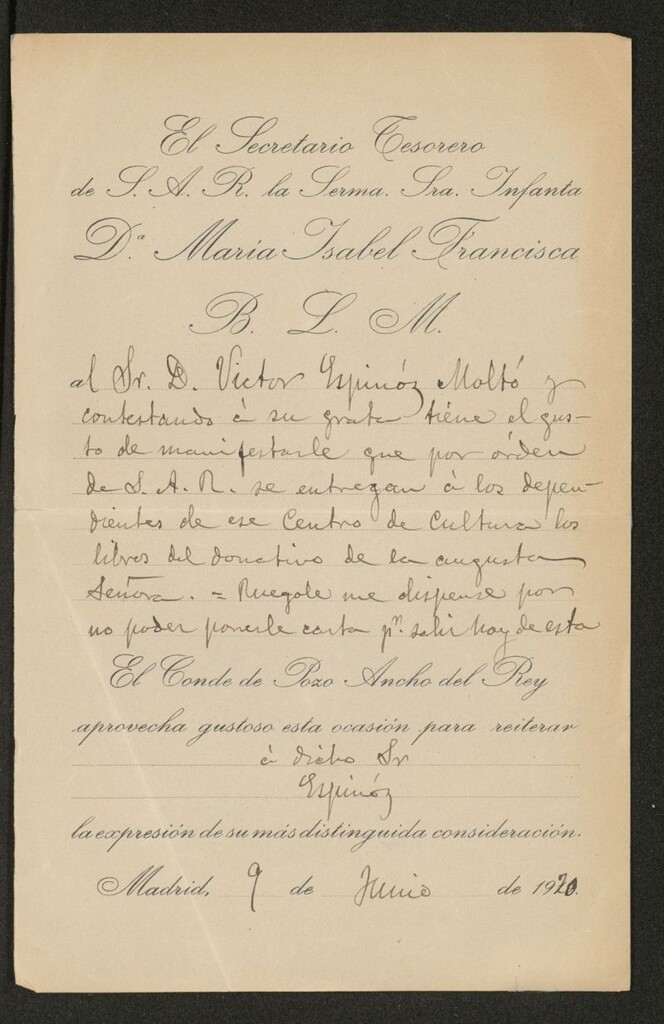 El Secretario Tesorero
de S. A. R. la Serma. Sra. Infanta
D.ª María Isabel Francisca
B. L. M.
al Sr. D. Victor Espinóz Moltó y
contestando á su grata tiene el gus-
to de manifestarle que por órden
de S. A. R. se entregan á los depen-
dientes de ese Centro de Cultura los
libros del donativo de la augusta
Señora. = Ruegole me dispense por
no poder ponerle carta pr. salir hoy de esta
El Conde de Pozo Ancho del Rey
aprovecha gustoso esta ocasión para reiterar
á dicho Sr
Espinóz
la expresión de su más distinguida consideración.
Madrid, 9 de Junio de 1920.